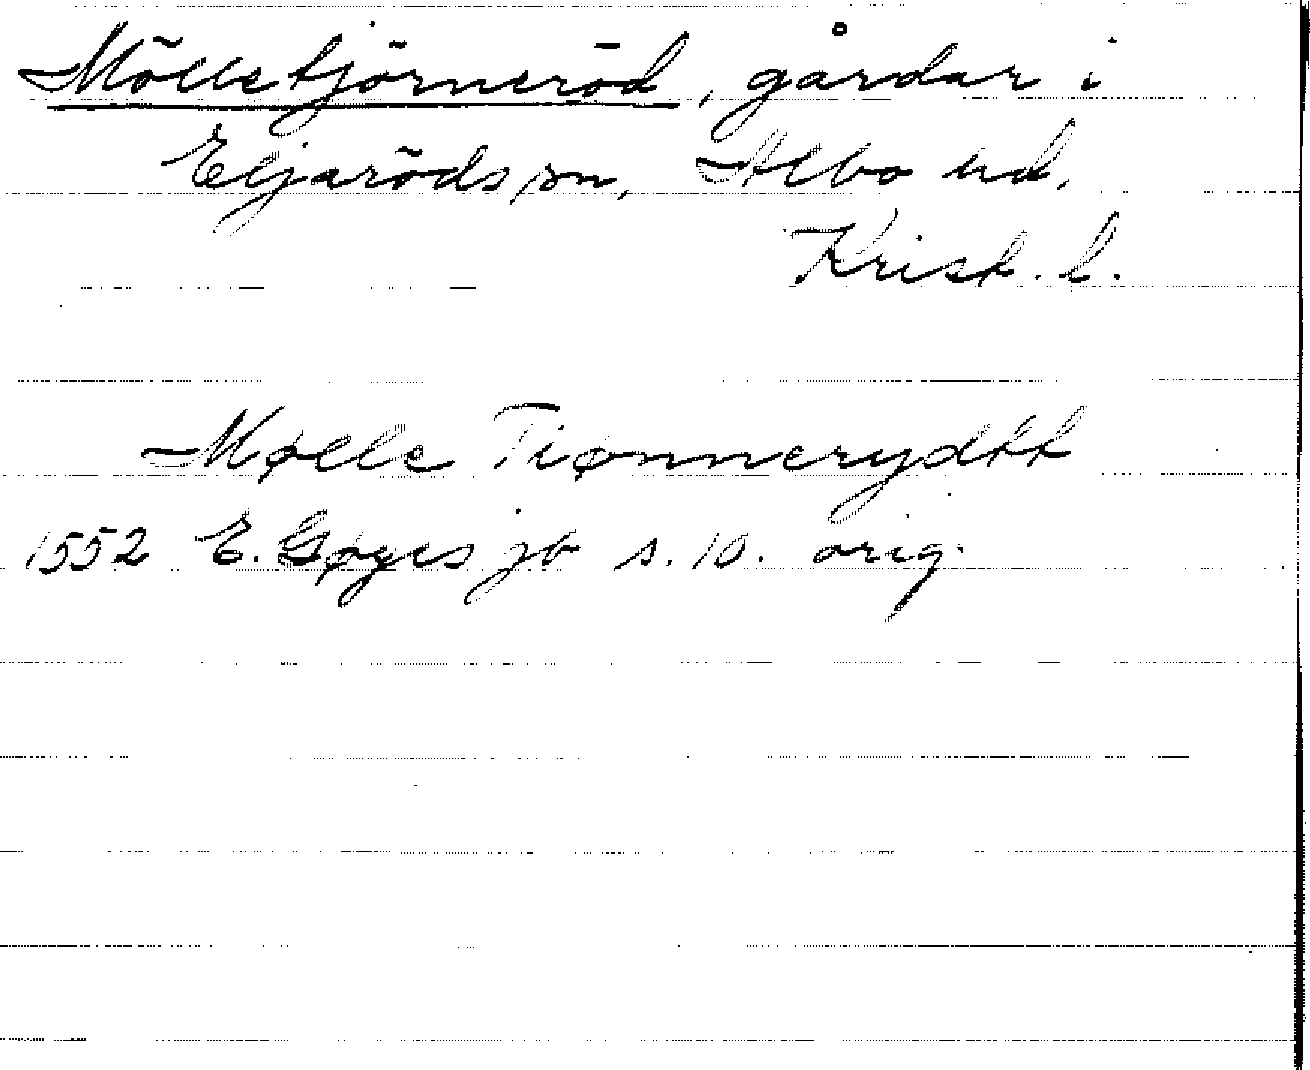 Mölletjörneröd, gårdar i
Eljaröds sn, Albo hd,
Krist. l.
Mølle Tiønnerydtt
1552 E. Gøyes jb s. 10. orig.